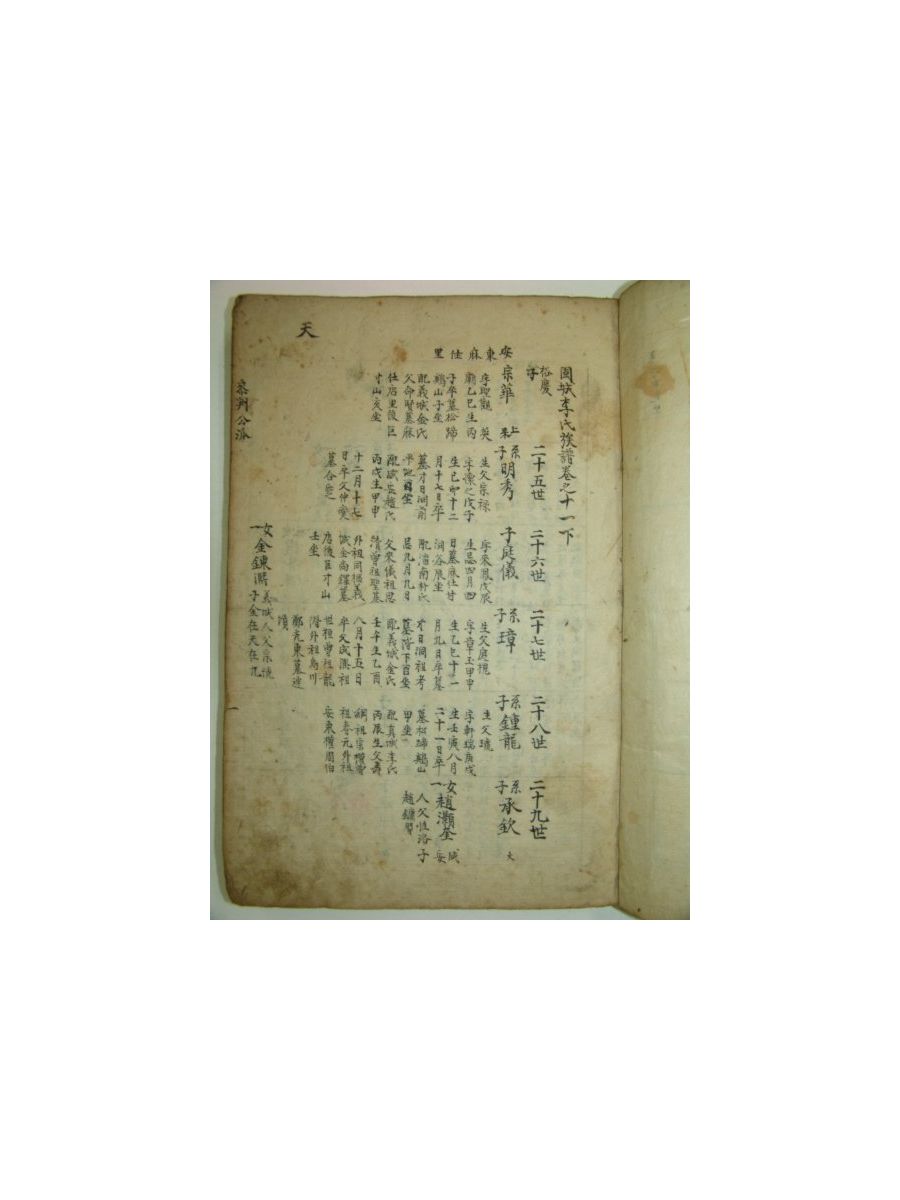 固城李氏族譜卷之十一下
二十五世
二十六世
二十七世
二十八世
二十九世
裕慶
子
宗華
系子明秀
子庭儀
系子璋
系子鍾龍
系子承欽
安東麻仕里
字聖觀 英
廟乙巳生丙
子卒墓松蹄
鵝山子坐
配義城金氏
父命賢墓麻
仕岩里後巨
寸山亥坐
生父宗祿
字潔之戊子
生己卯十二
月十七日卒
墓才日洞前
平地酉坐
配咸安趙氏
丙戌生甲申
十二月十七
日卒父仲愛
墓合窆
字來鳳戊辰
生忌四月四
日墓麻仕甘
洞谷辰坐
配潘南朴氏
忌九月九日
父來儀祖思
清曾祖聖基
外祖同福義
城金尚鐸墓
店後巨寸山
壬坐
女金鍊潤
義城人父宗
子金在天在九
生父庭槐
字章玉甲申
生乙巳十一
月九月卒墓
才日洞祖考
墓階下酉坐
配義城金氏
壬午生乙酉
八月十五日
卒父成漢祖
世桓曾祖龍
潛外祖烏川
鄭光東墓
生父璡
字軒瑞庚戌
生壬寅八月
二十一日卒
墓松蹄鵝山
甲坐
配真城李氏
丙辰生父壽
綱祖宗櫕曾
祖春元外祖
安東權周伯
女趙灝荃 咸安
人父性洛子
趙鏞
天
參判公派
一